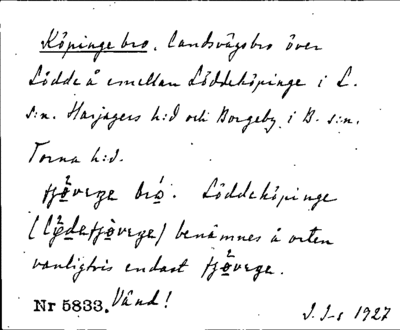 Köpinge bro, landsvägsbro över
Lödde å emellan Löddeköpinge i L.
s:n. Harjagers h:d och Borgeby i B. s:n.
Torna h:d.
Löddeköpinge
benämnes å orten
vanligtvis endast
Nr 5833. Vänd! J. J-s 1927